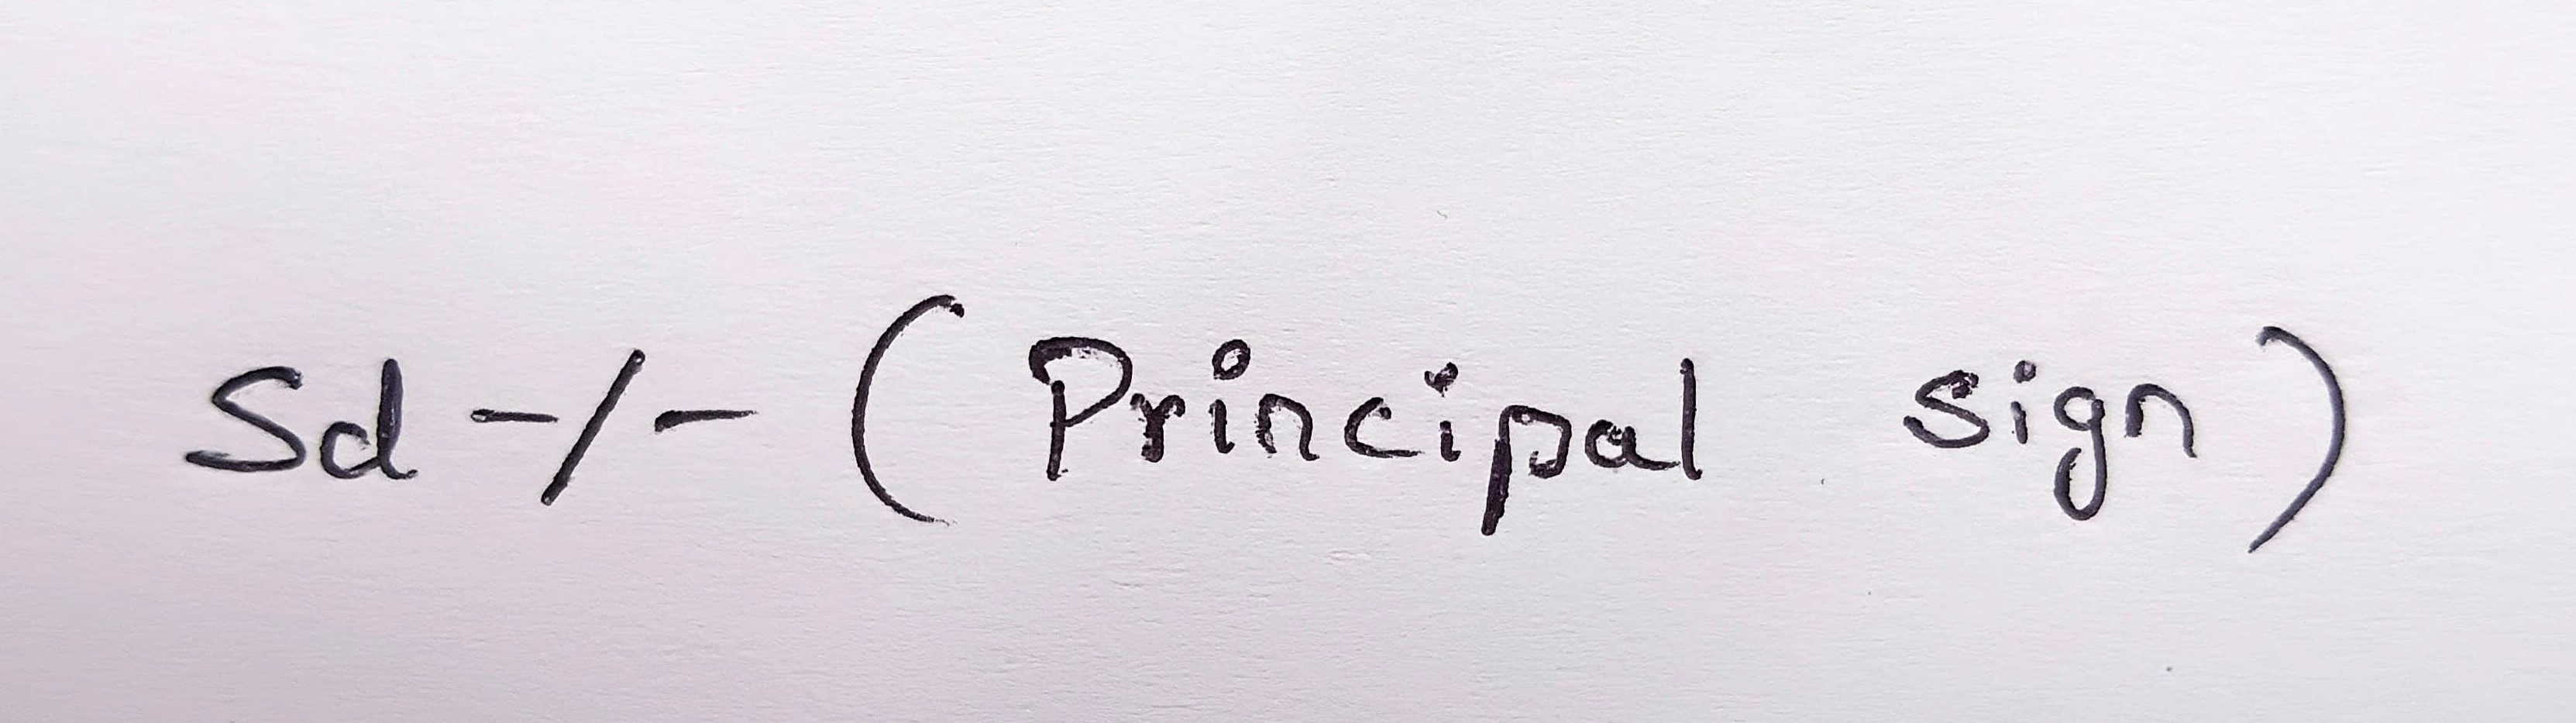 Sd -/- ( Principal sign )